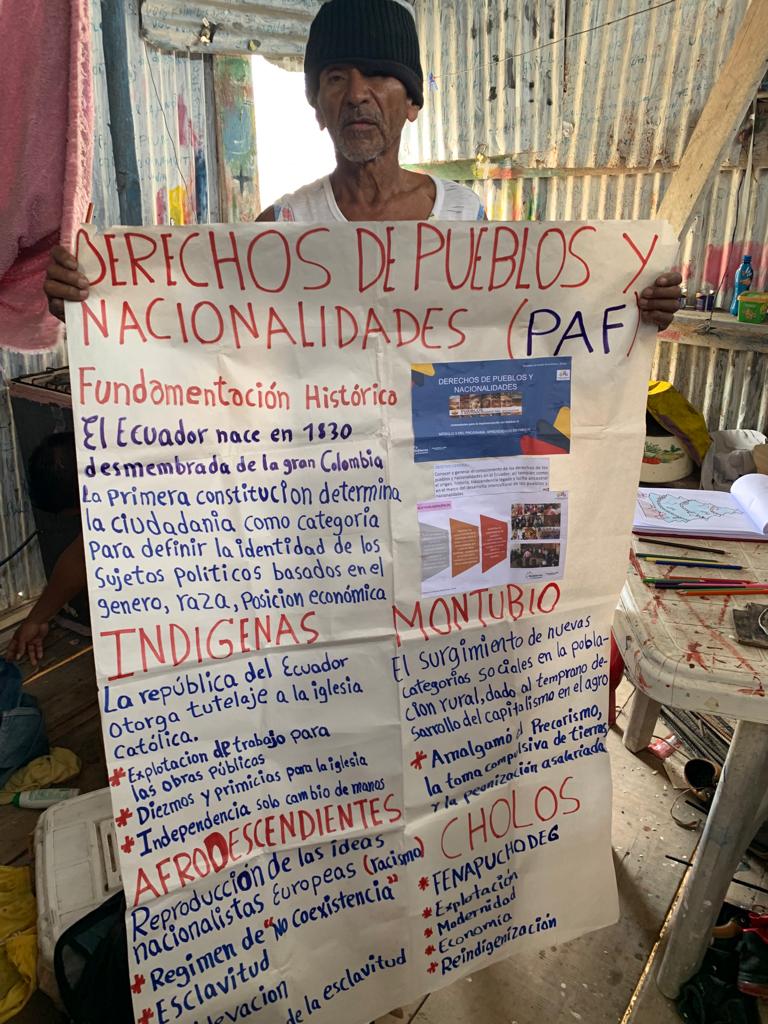 DERECHOS DE PUEBLOS Y
NACIONALIDADES (PAF)
Fundamentación Histórica
El Ecuador nace en 1830
desmembrada de la gran Colombia
La primera constitucion determina
la ciudadania como categoria
para definir la identidad de los
sujetos politicos basados en el
genero, raza, posicion económica
INDIGENAS
La república del Ecuador
otorga tutelaje a la iglesia
católica.
* Explotacion de trabajo para
las obras públicas
* Diezmos y primicias para la iglesia
* Independencia solo cambio de manos
AFRODESCENDIENTES
Reproducción de las ideas
nacionalistas Europeas (racismo)
* Regimen de "No coexistencia"
* Esclavitud
de la esclavitud
DERECHOS DE PUEBLOS Y
NACIONALIDADES
MONTUBIO
El surgimiento de nuevas
categorias sociales en la pobla-
cion rural, dado al temprano de-
sarrollo del capitalismo en el agro
* Amalgamó el Precarismo,
la toma compulsiva de tierras
y la peonización asalariada
CHOLOS
* FENAPUCHODEG
* Explotación
* Modernidad
* Economia
* Reindigenización